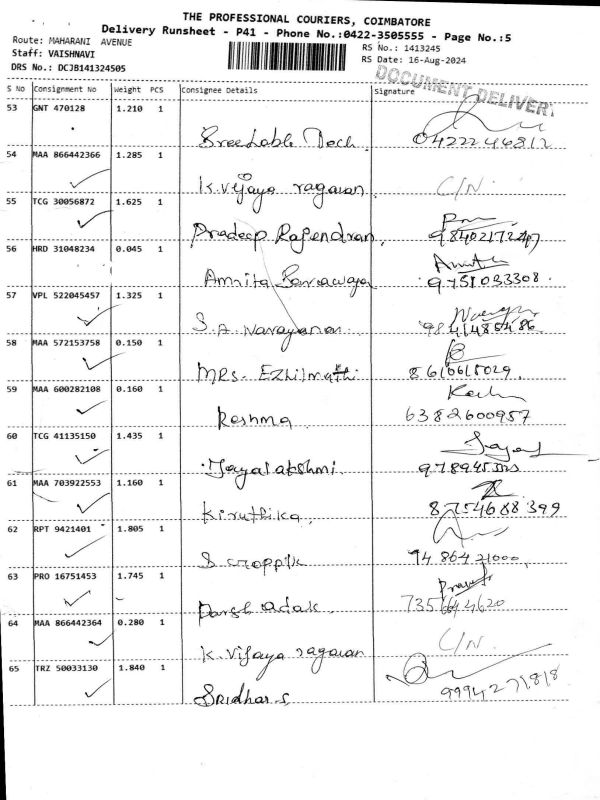 THE PROFESSIONAL COURIERS, COIMBATORE
Delivery Runsheet - P41 - Phone No.:0422-3505555 - Page No.:5
Route: MAHARANI AVENUE
Staff: VAISHNAVI
DRS No.: DCJB141324505
RS No.: 1413245
RS Date: 16-Aug-2024
DOCUMENT DELIVERY
S No Consignment No Weight PCS Consignee Details Signature
53 GNT 470128 1.210 1
54 MAA 866442366 1.285 1
K. Vijaya ragavan C/N.
55 TCG 30056872 1.625 1
Pradeep Rajendran.
56 HRD 31048234 0.045 1
Amrita 9751033308.
57 VPL 522045457 1.325 1
S.A. Narayanan
58 MAA 572153758 0.150 1
MRS. Ezhilmathi
59 MAA 600282108 0.160 1
Reshma 6382600957
60 TCG 41135150 1.435 1
Jayalakshmi
61 MAA 703922553 1.160 1
Kiruthika, 8754688399
62 RPT 9421401 1.805 1
63 PRO 16751453 1.745 1
64 MAA 866442364 0.280 1
K. Vijaya ragavan C/N.
65 TRZ 50033130 1.840 1
Sridhar.S 9994271818